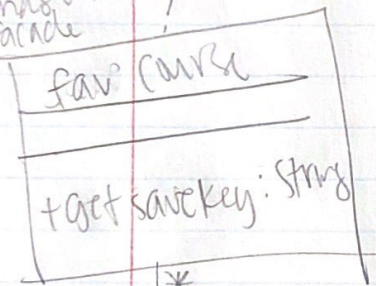 acade
fav course
+get savekey: String
*